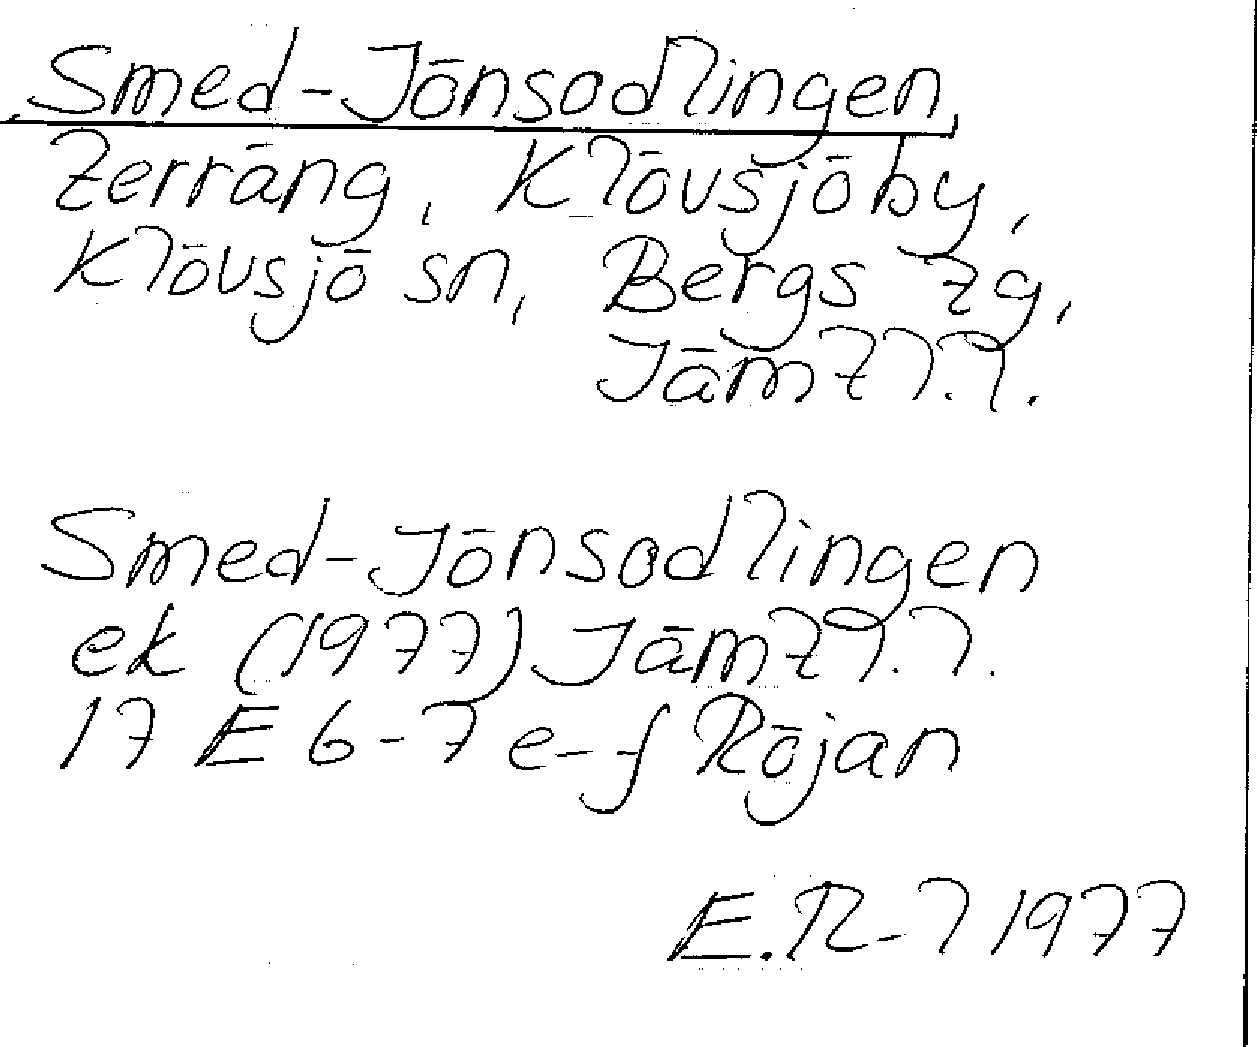 Smed-Jönsodlingen,
terräng, Klövsjöby,
Klövsjö sn, Bergs tg,
Jämtl.l.
Smed-Jönsodlingen
ek (1977) Jämtl.l.
17 E 6-7 e-f Röjan
E.R-l 1977